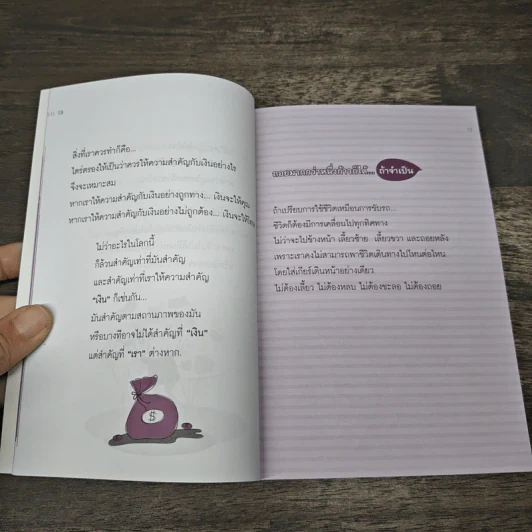 สิ่งที่เราควรทำก็คือ...
ใคร่ครองให้เป็นว่าควรให้ความสำคัญกับเงินอย่างไร
จึงจะเหมาะสม
หากเราให้ความสำคัญกับเงินอย่างถูกทาง... เงินจะให้คุณ
หากเราให้ความสำคัญกับเงินอย่างไม่ถูกต้อง... เงินจะให้โทษ
ไม่ว่าอะไรในโลกนี้
ก็ล้วนสำคัญเท่าที่มันสำคัญ
และสำคัญเท่าที่เราให้ความสำคัญ
"เงิน" ก็เช่นกัน...
มันสำคัญตามสถานภาพของมัน
หรือบางทีอาจไม่ได้สำคัญที่ "เงิน"
แต่สำคัญที่ "เรา" ต่างหาก.
$
ถอยมากกว่าหนึ่งก้าวก็ได้... ถ้าจำเป็น
ถ้าเปรียบการใช้ชีวิตเหมือนการขับรถ...
ชีวิตก็ต้องมีการเคลื่อนไปทุกทิศทาง
ไม่ว่าจะไปข้างหน้า เลี้ยวซ้าย เลี้ยวขวา และถอยหลัง
เพราะเราคงไม่สามารถพาชีวิตเดินทางไปไหนต่อไหน
โดยใส่เกียร์เดินหน้าอย่างเดียว
ไม่ต้องเลี้ยว ไม่ต้องหลบ ไม่ต้องชะลอ ไม่ต้องถอย